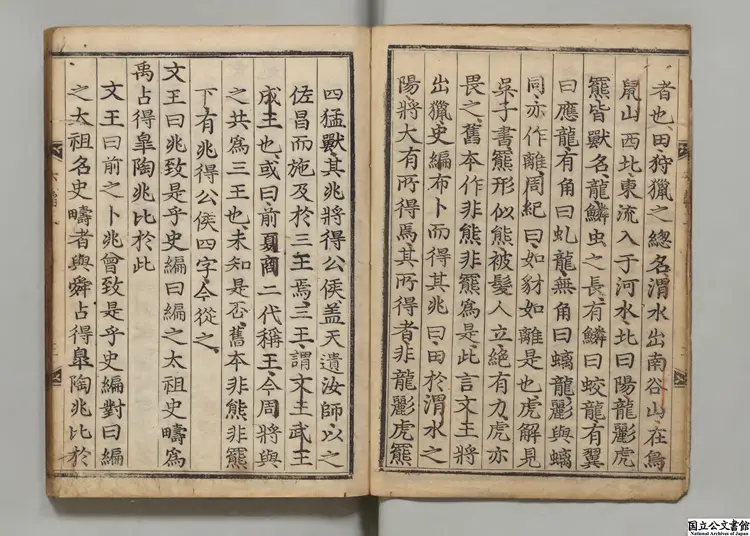 者也、田狩獵之緫名、渭水出南谷山、在鳥
鼠山西北、東流入于河、水北曰陽、龍彲虎
羆皆獸名、龍鱗虫之長、有鱗曰蛟龍、有翼
曰應龍、有角曰虬龍、無角曰螭龍、彲與螭
同、亦作離、周紀曰、如豺如離是也、虎解見
吳子書、羆形似熊、被髮人立、絶有力、虎亦
畏之、舊本作非熊非羆爲是、此言文王將
出獵、史編布卜而得其兆曰、田於渭水之
陽、將大有所得焉、其所得者非龍彲虎羆
四猛獸、其兆將得公侯、盖天遺汝師、以之
佐昌而施及於三王焉、三王、謂文王武王
成王也、或曰、前夏商二代稱王、今周將與
之共爲三王也、未知是否、舊本非熊非羆
下有兆得公侯四字、今從之、
文王曰兆致是乎史編曰編之太祖史疇爲
禹占得皐陶兆比於此
文王曰前之卜兆曾致是乎史編對曰編
之太祖名史疇者與舜占得皐陶兆比於
国立公文書館
National Archives of Japan